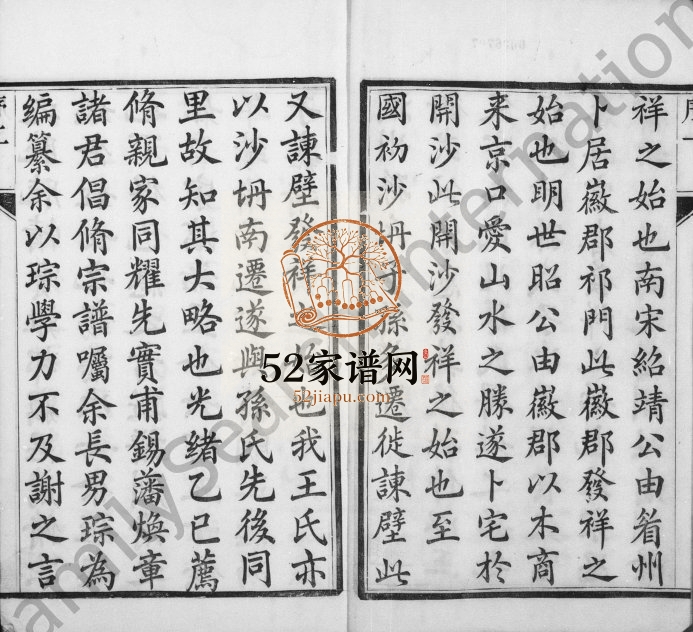 祥之始也南宋紹靖公由睂州
卜居徽郡祁門此徽郡發祥之
始也明世昭公由徽郡以木商
来京口愛山水之勝遂卜宅於
開沙此開沙發祥之始也至
國初沙坍子孫遷徙諫壁此
又諫壁發祥也我王氏亦
以沙坍南遷遂與孫氏先後同
里故知其大略也光緒乙巳薦
脩親家同耀先實甫錫藩煥章
諸君倡脩宗譜囑余長男琮為
編纂余以琮學力不及謝之言
52家谱网
52jiapu.com